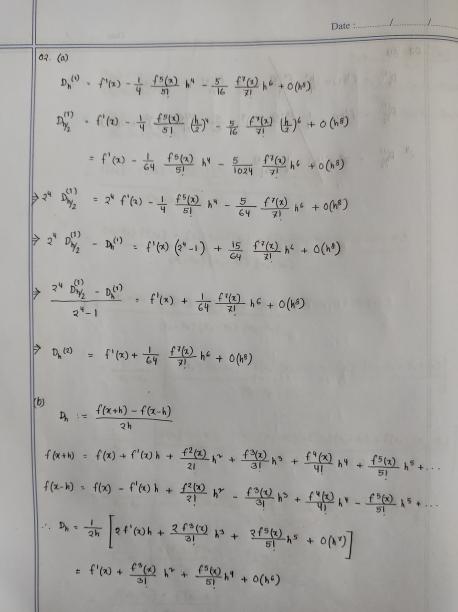 Date : ............/............/............
02. (a)
D_h^(1) = f'(x) - 1/4 f^5(x)/5! h^4 - 5/16 f^7(x)/7! h^6 + O(h^8)
D_{h/2}^(1) = f'(x) - 1/4 f^5(x)/5! (h/2)^4 - 5/16 f^7(x)/7! (h/2)^6 + O(h^8)
= f'(x) - 1/64 f^5(x)/5! h^4 - 5/1024 f^7(x)/7! h^6 + O(h^8)
⇒ 2^4 D_{h/2}^(1) = 2^4 f'(x) - 1/4 f^5(x)/5! h^4 - 5/64 f^7(x)/7! h^6 + O(h^8)
⇒ 2^4 D_{h/2}^(1) - D_h^(1) = f'(x) (2^4-1) + 15/64 f^7(x)/7! h^6 + O(h^8)
⇒ (2^4 D_{h/2}^(1) - D_h^(1))/(2^4-1) = f'(x) + 1/64 f^7(x)/7! h^6 + O(h^8)
⇒ D_h^(2) = f'(x) + 1/64 f^7(x)/7! h^6 + O(h^8)
(b)
D_h := (f(x+h) - f(x-h))/2h
f(x+h) = f(x) + f'(x) h + f^2(x)/2! h^2 + f^3(x)/3! h^3 + f^4(x)/4! h^4 + f^5(x)/5! h^5 + ...
f(x-h) = f(x) - f'(x) h + f^2(x)/2! h^2 - f^3(x)/3! h^3 + f^4(x)/4! h^4 - f^5(x)/5! h^5 + ...
∴ D_h = 1/2h [2f'(x)h + 2f^3(x)/3! h^3 + 2f^5(x)/5! h^5 + O(h^7)]
= f'(x) + f^3(x)/3! h^2 + f^5(x)/5! h^4 + O(h^6)